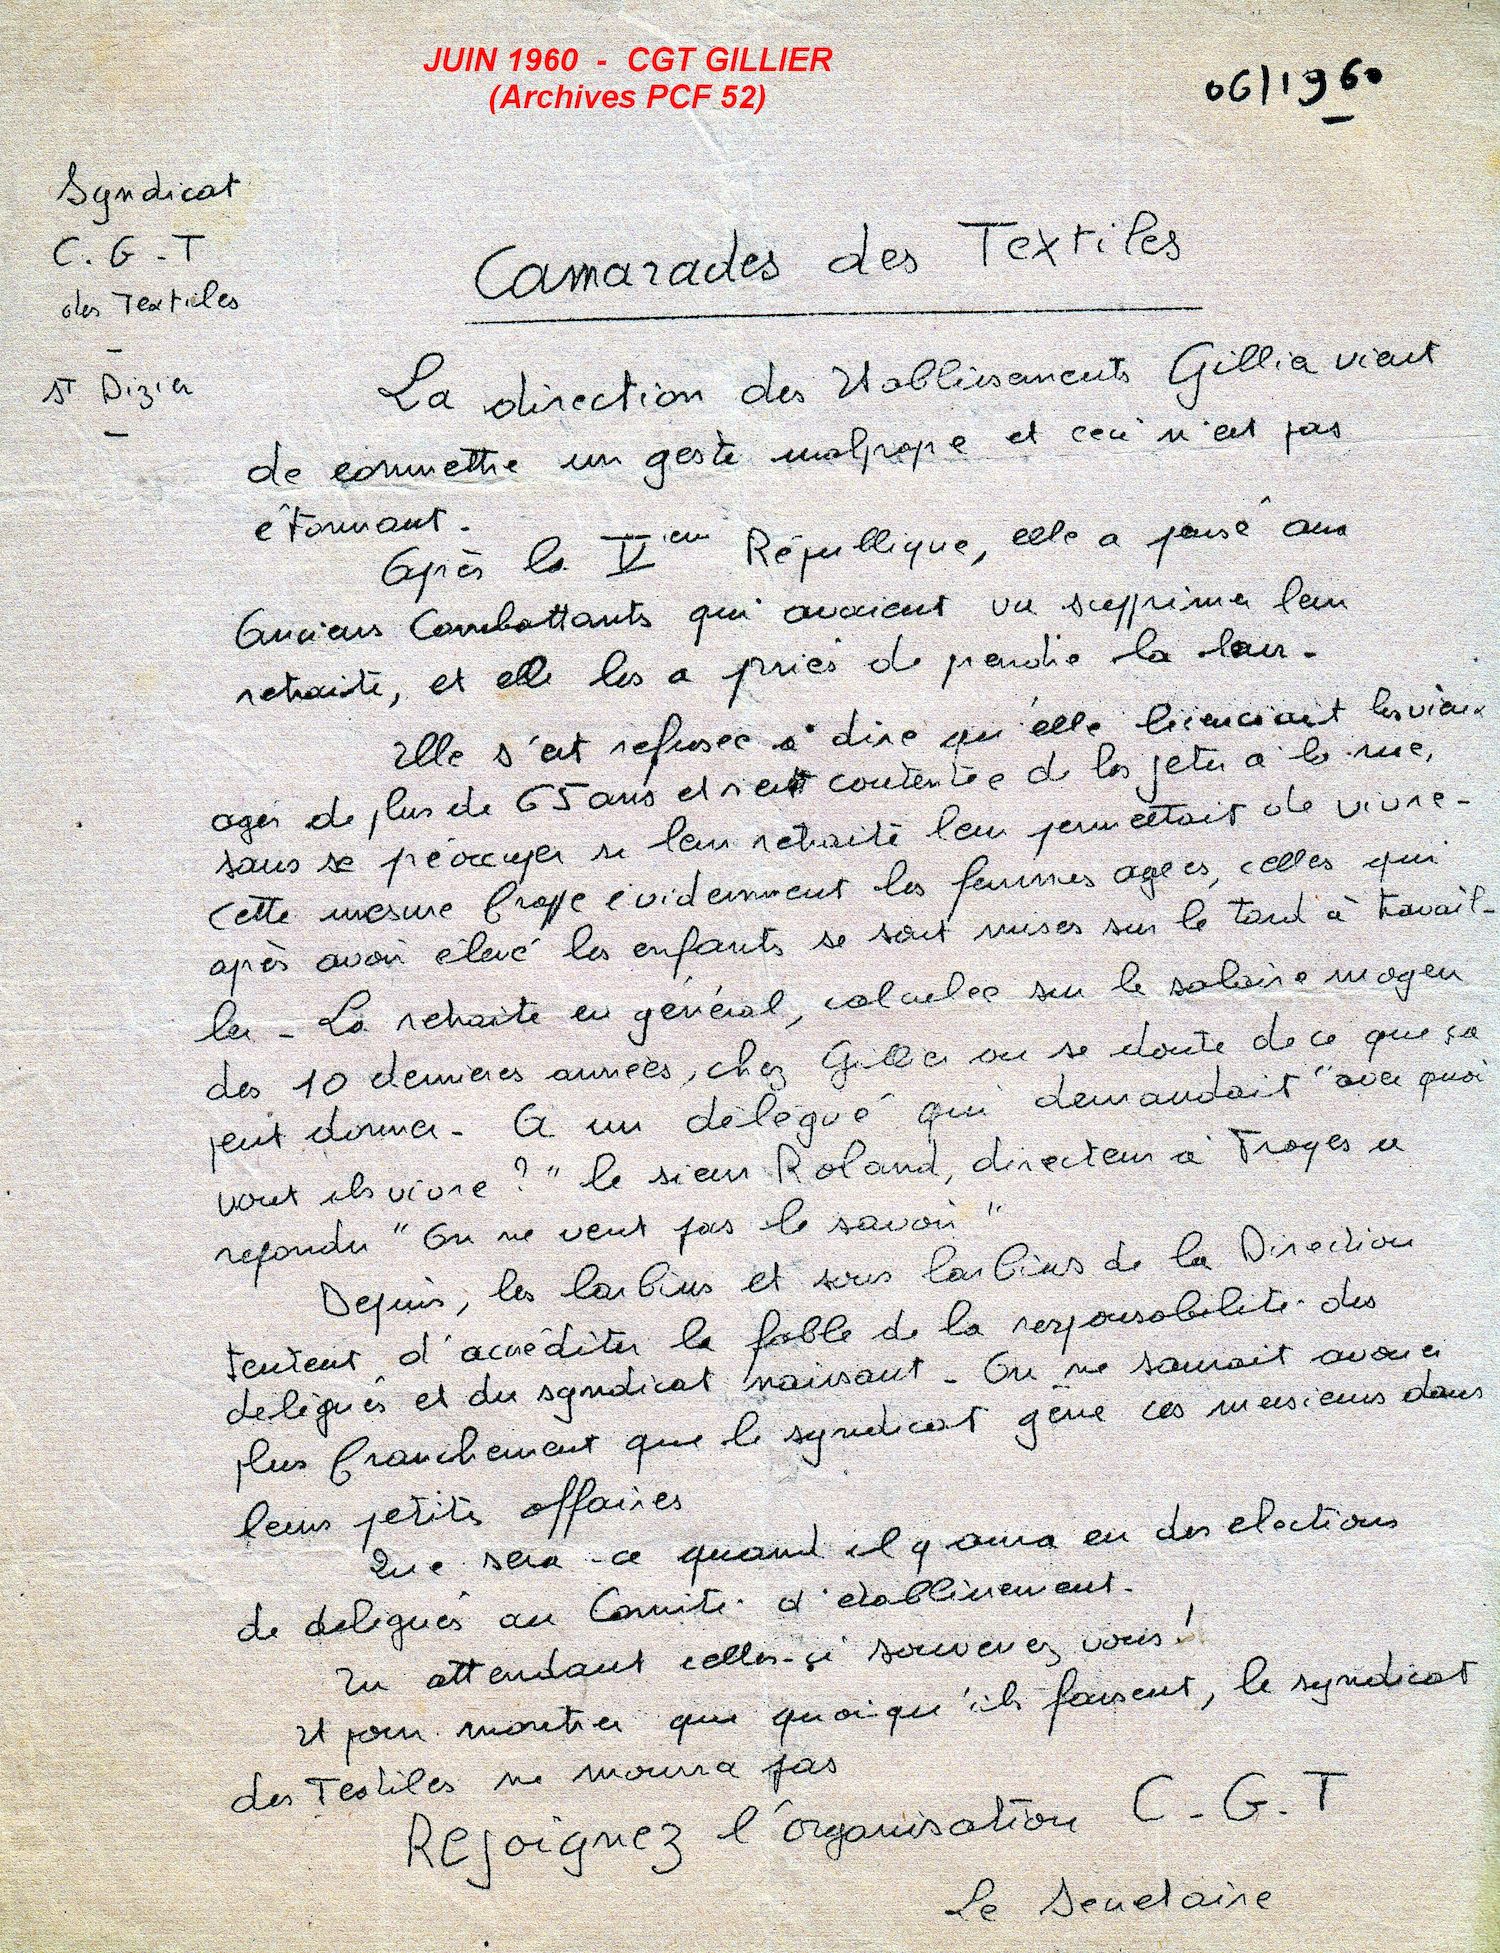 JUIN 1960 - CGT GILLIER
(Archives PCF 52)
06/1960
Syndicat
C.G.T
des Textiles
St Dizier
Camarades des Textiles
La direction des Etablissements Gillier vient
de commettre un geste malpropre et ceci n'est pas
étonnant.
Après la Vieme République, elle a pensé aux
Anciens Combattants qui avaient vu supprimer leur
retraite, et elle les a priés de prendre la leur.
Elle s'est refusée à dire qu'elle licenciait les vieux
agés de plus de 65 ans et s'est contentée de les jeter à la rue,
sans se préoccuper si leur retraite leur permettait de vivre -
cette mesure frappe évidemment les femmes agées, celles qui
après avoir élevé les enfants se sont mises sur le tard à travail-
ler - La retraite en général, calculée sur le salaire moyen
des 10 dernières années, chez Gillier on se doute de ce que ça
peut donner - A un délégué qui demandait "avec quoi
vont ils vivre ?" le sieur Roland, directeur à Troyes a
repondu "On ne veut pas le savoir"
Depuis, les larbins et sous larbins de la Direction
tentent d'accréditer la fable de la responsabilité des
délégués et du syndicat naissant - On ne saurait avouer
plus franchement que le syndicat gène ces messieurs dans
leurs petites affaires
Que sera-ce quand il y aura eu des elections
de délégués au Comité d'etablissement.
En attendant celles-çi souvenez vous!
Et pour montrer que quoiqu'ils fassent, le syndicat
des Textiles ne mourra pas
Rejoignez l'organisation C.G.T
Le Secretaire